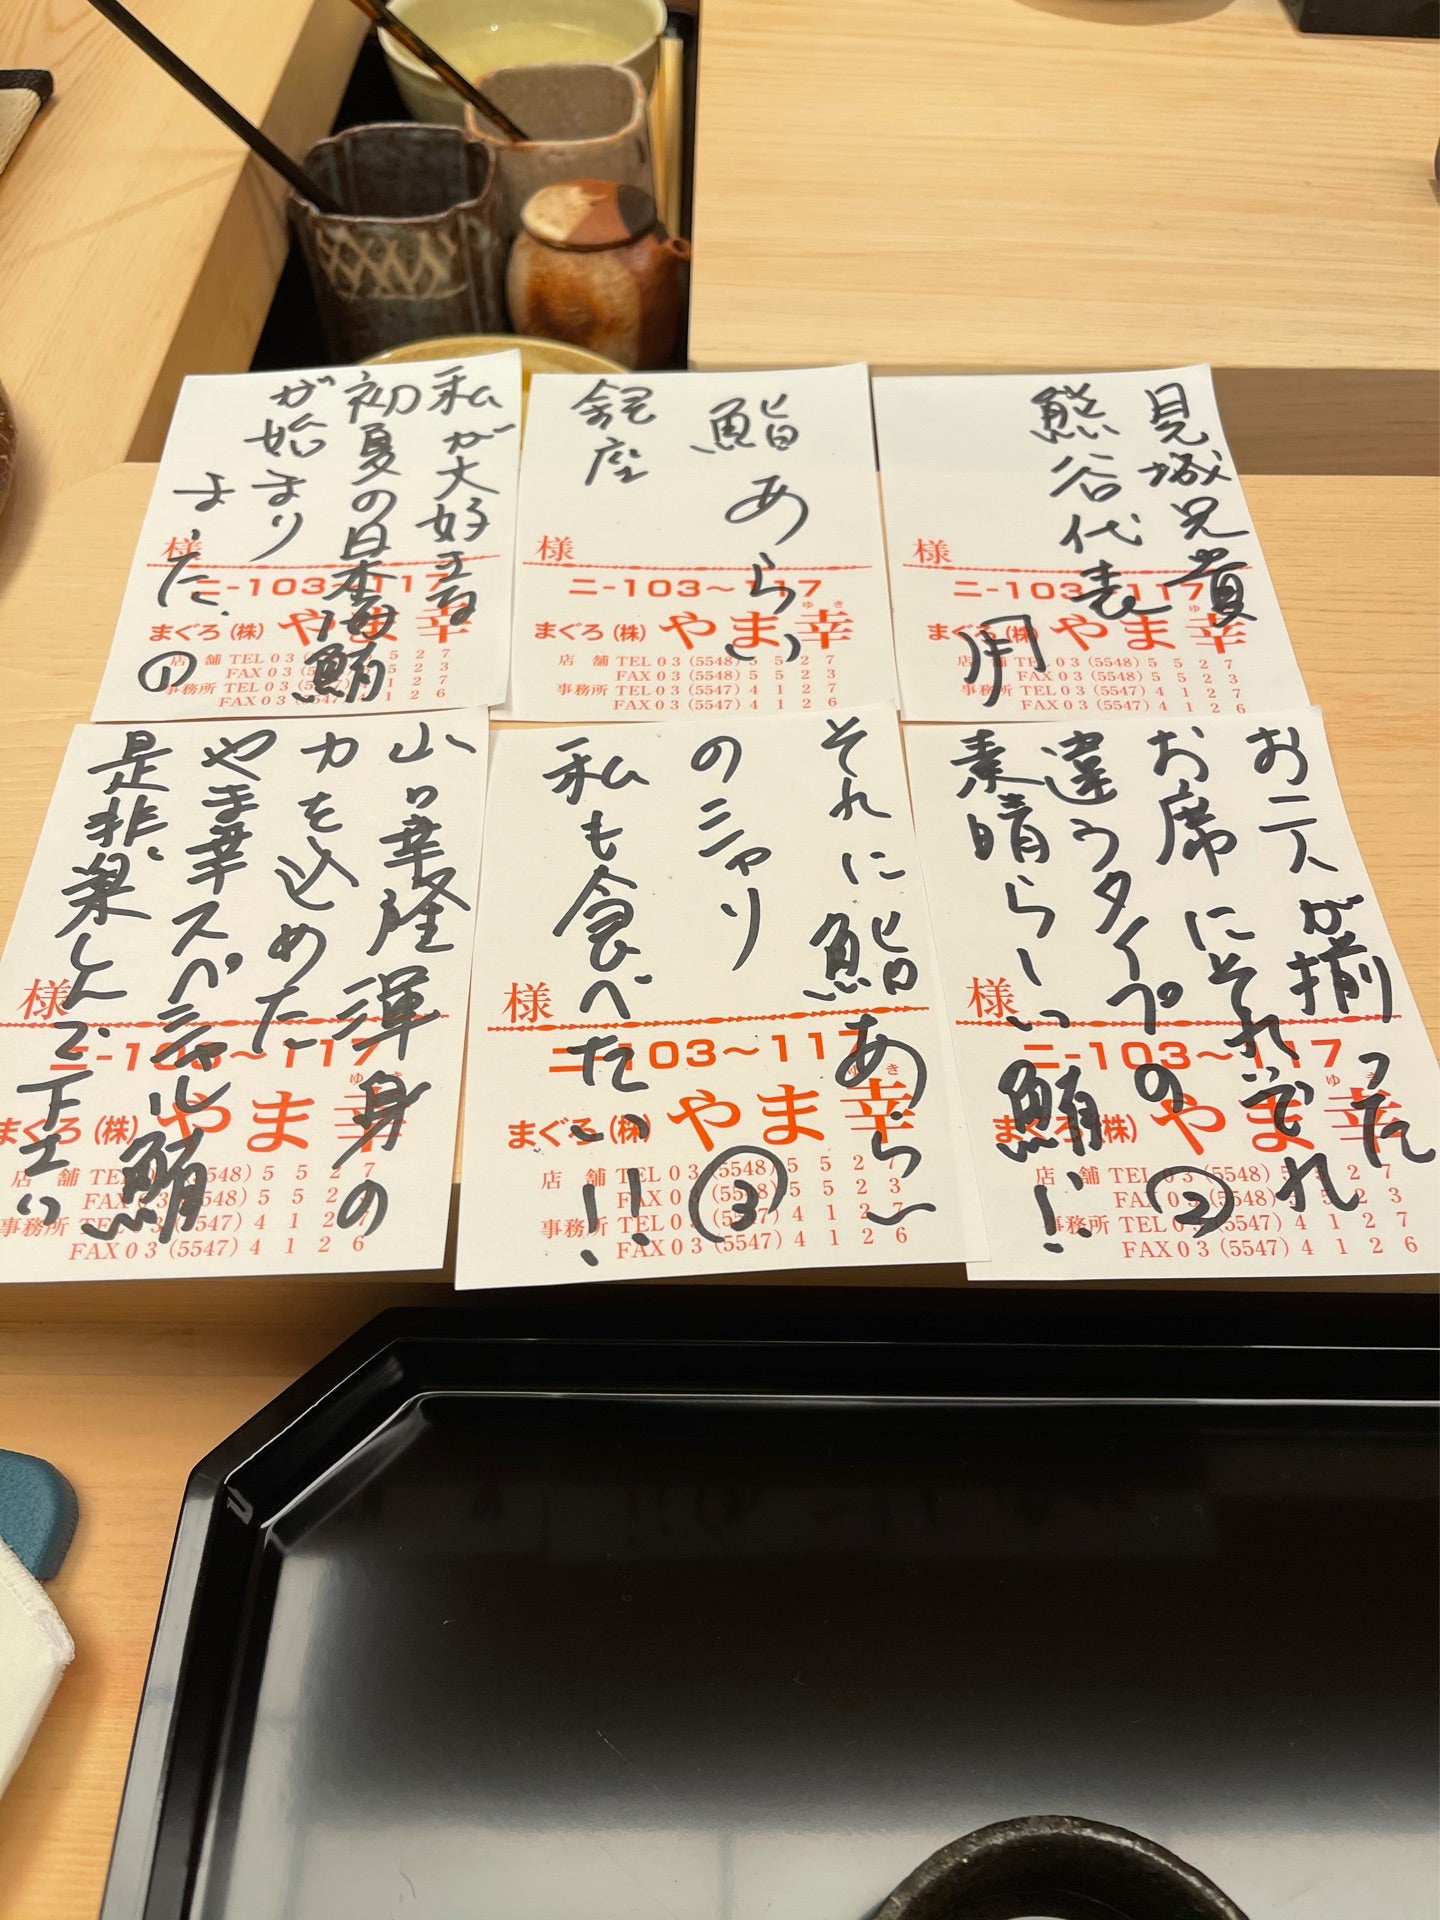 見城兄貴
熊谷代表
用
様
ニ-103～117
ゆき
まぐろ(株)やま幸
店舗 TEL03(5548)5527
FAX03(5548)5523
事務所 TEL03(5547)4127
FAX03(5547)4126
鮨あらい
銀座
様
ニ-103～117
ゆき
まぐろ(株)やま幸
店舗 TEL03(5548)5527
FAX03(5548)5523
事務所 TEL03(5547)4127
FAX03(5547)4126
私が大好きな
初夏の日本海鮪
が始まり
ました。
①
様
ニ-103～117
まぐろ(株)やま幸
店舗 TEL03(5548)5527
FAX03(5548)5523
事務所 TEL03(5547)4127
FAX03(5547)4126
お二人が揃った
お席にそれぞれ
違うタイプの
素晴らしい鮪!!
②
様
ニ-103～117
ゆき
まぐろ(株)やま幸
店舗 TEL03(5548)5527
FAX03(5548)5523
事務所 TEL03(5547)4127
FAX03(5547)4126
それに鮨あらい
のシャリ
私も食べたい!!
③
様
ニ-103～117
ゆき
まぐろ(株)やま幸
店舗 TEL03(5548)5527
FAX03(5548)5523
事務所 TEL03(5547)4127
FAX03(5547)4126
山口幸隆渾身の
力を込めた
やま幸スペシャル鮪
是非楽しんで下さい
様
ニ-103～117
ゆき
まぐろ(株)やま幸
店舗 TEL03(5548)5527
FAX03(5548)5523
事務所 TEL03(5547)4127
FAX03(5547)4126